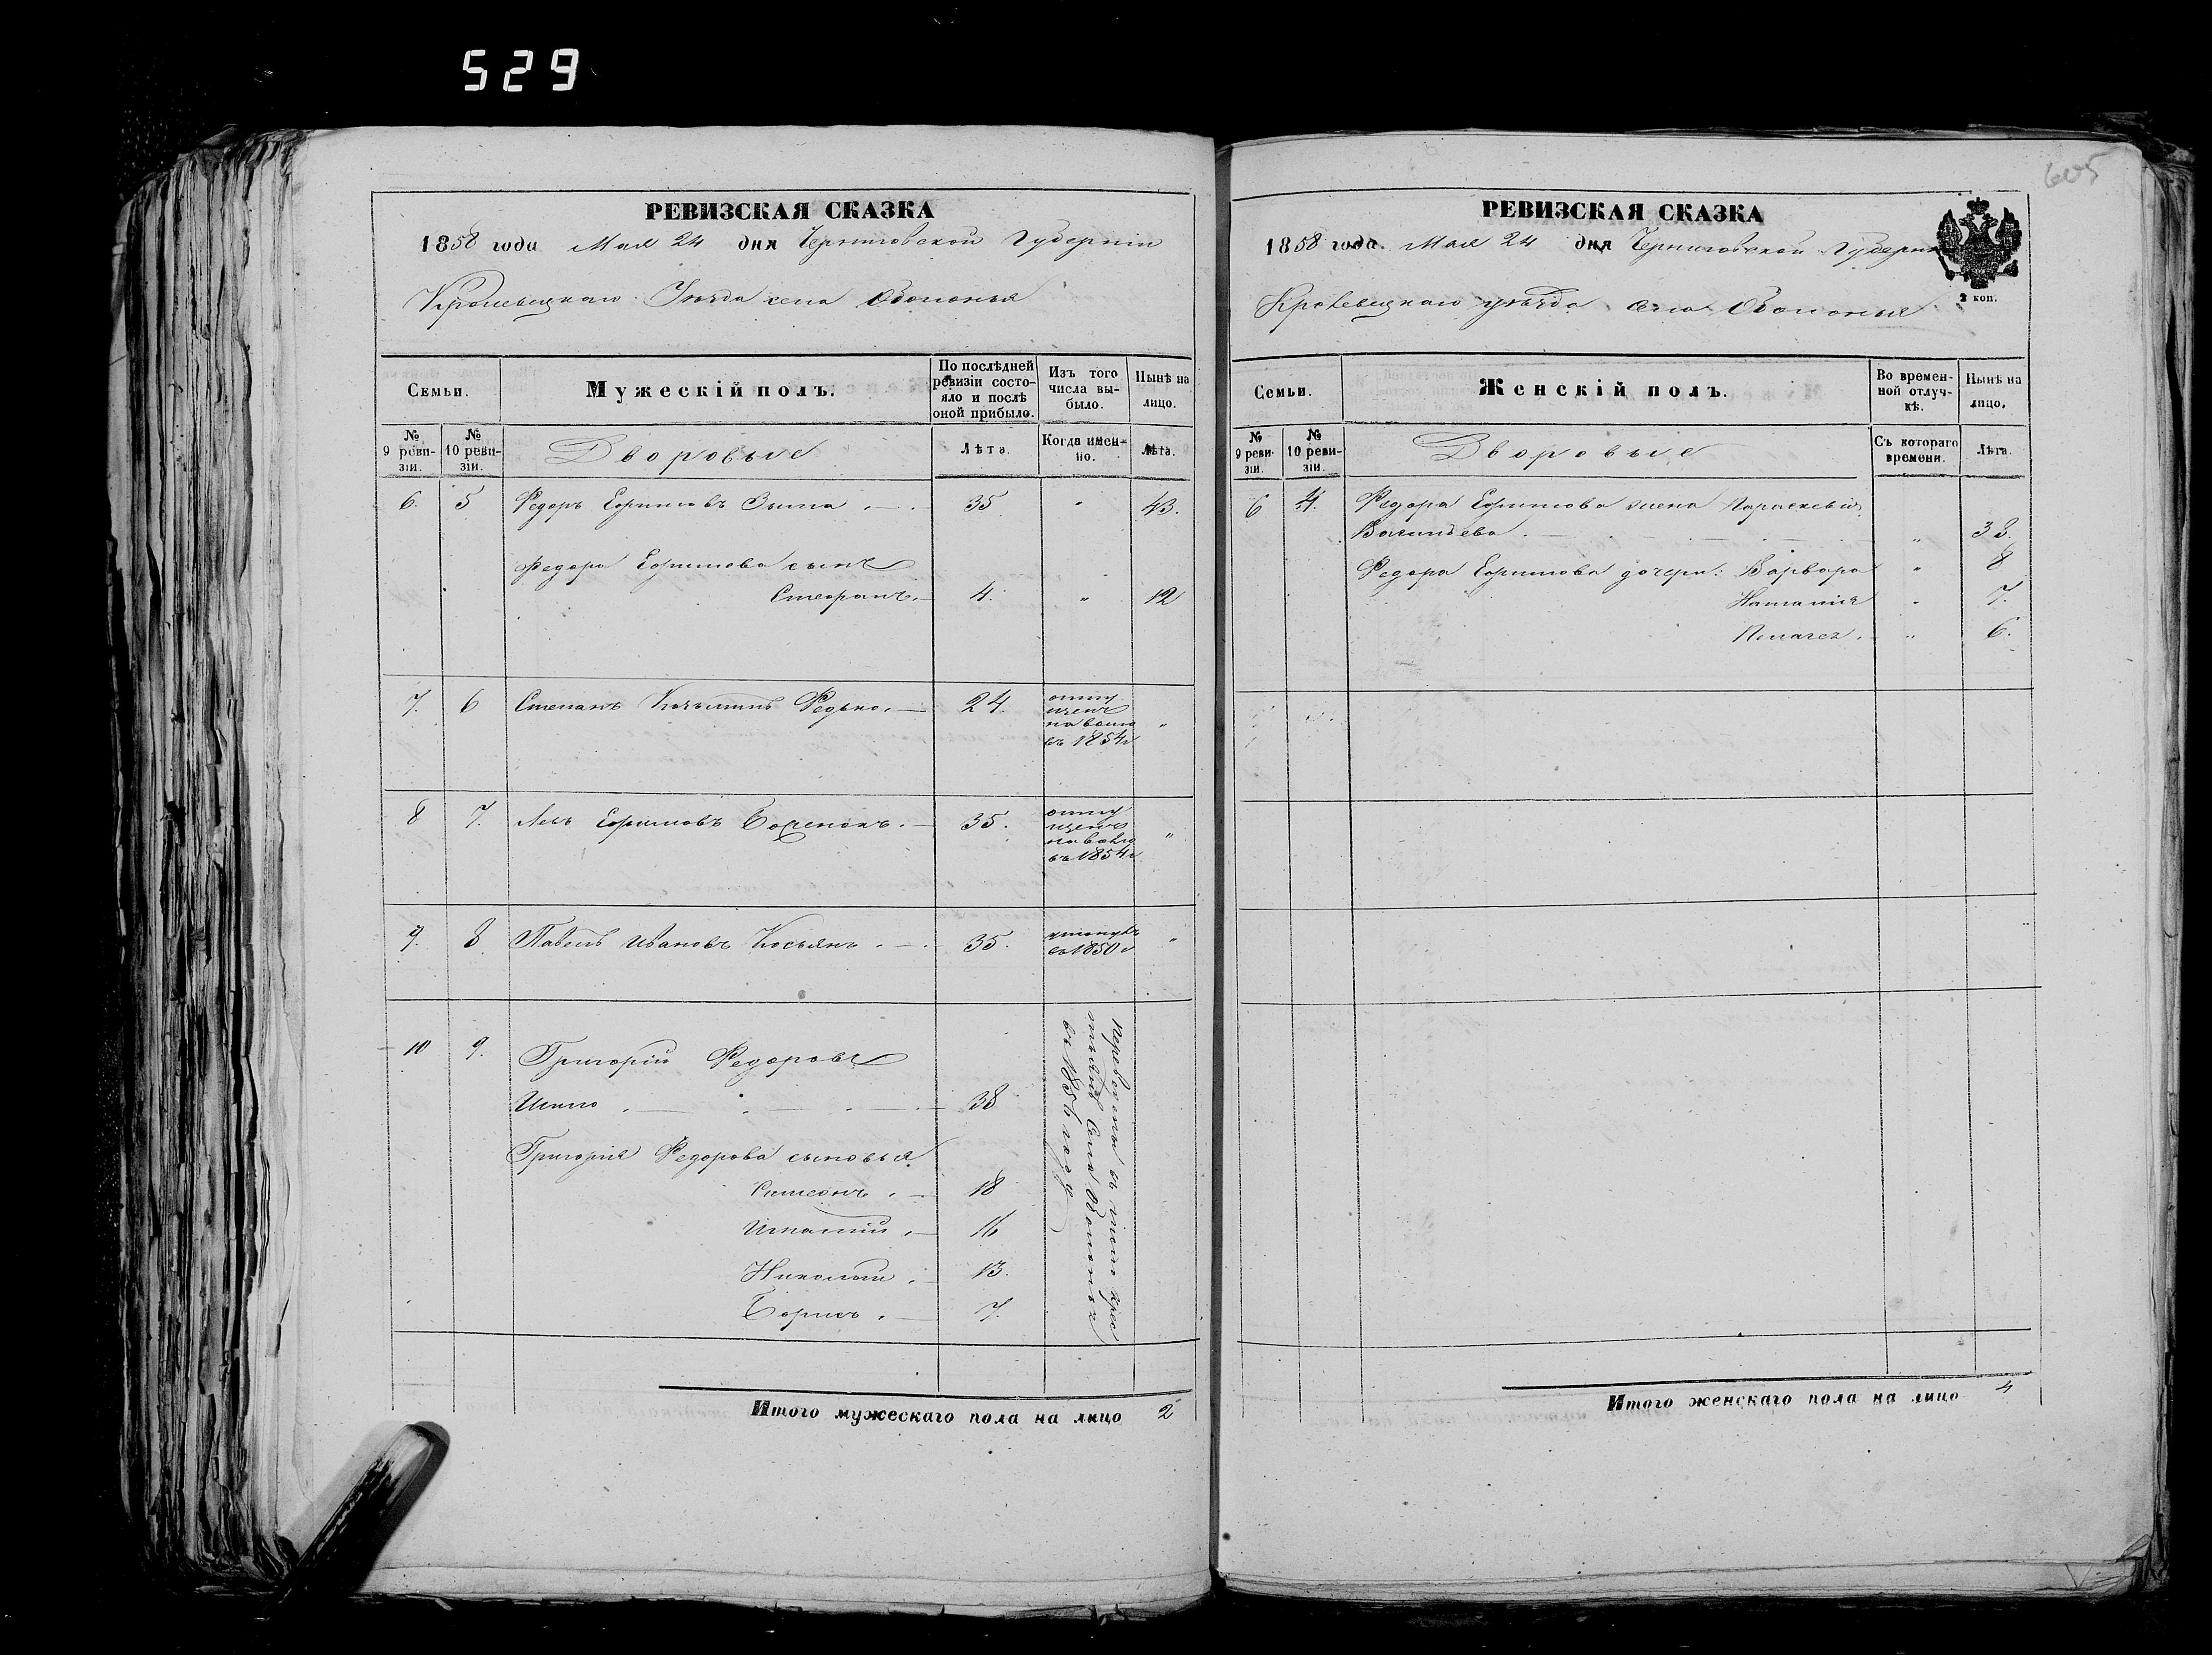 529
605
РЕВИЗСКАЯ СКАЗКА
1858 года Мая 24 дня Черниговской Губерніи
Кролевецкаго Уѣзда села Оболонья
Семьи.
Мужескій полъ.
По послѣдней ревизіи состояло и послѣ оной прибыло.
Изъ того числа выбыло.
Нынѣ на лицо.
№ 9 ревизіи.
№ 10 ревизіи.
Дворовые
Лѣта.
Когда именно.
Лѣта.
6. 5 Федоръ Ефимовъ Зима 35 " 43.
Федора Ефимова сынъ
Стефанъ. 4. " 12
7. 6 Степанъ Федько. 24. отпущенъ на волю въ 1854 г "
8 7. Ефимовъ 35. отпущенъ на волю въ 1854 г "
9. 8 Павелъ Ивановъ Косьянъ 35. въ 1850 г "
10 9. Григорій Федоровъ
38
Григорія Федорова сыновья
Симеонъ. 18
Игнатій. 16
Николай. 13.
Борисъ. 7.
Переведены въ число крес
села Оболонья
въ 1856 году
Итого мужескаго пола на лицо 2
РЕВИЗСКАЯ СКАЗКА
1858 года. Мая 24 дня Черниговской Губерніи
2 коп.
Кролевецкаго уѣзда села Оболонья
Семьи.
Женскій полъ.
Во временной отлучкѣ.
Нынѣ на лицо.
№ 9 ревизіи.
№ 10 ревизіи.
Дворовые
Съ котораго времени.
Лѣта.
6 4. Федора Ефимова жена Параскевія
Васильева. " 38.
Федора Ефимова дочери: Варвара " 8
Наталія " 7.
Пелагея. " 6.
Итого женскаго пола на лицо 4